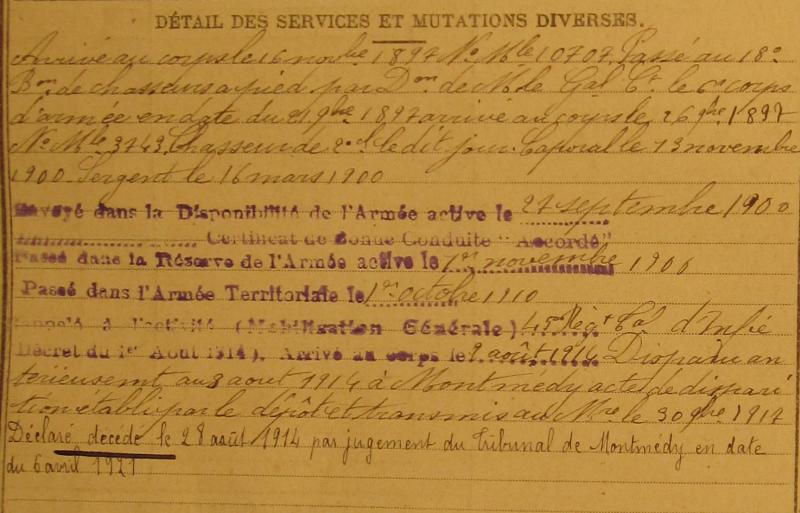 DÉTAIL DES SERVICES ET MUTATIONS DIVERSES.
Arrivé au corps le 16 novbe 1897 No Mle 10707. Passé au 18e
Bon de chasseurs à pied par Don de Mr le Gal Ct le 6e corps
d'armée en date du 21 9bre 1897 arrivé au corps le 26 9bre 1897
No Mle 3743. Chasseur de 2e cl. le dit jour. Caporal le 13 novembre
1900 Sergent le 16 mars 1900
Envoyé dans la Disponibilité de l'Armée active le 27 septembre 1900
Certificat de Bonne Conduite "Accordé"
Passé dans la Réserve de l'Armée active le 1er novembre 1900
Passé dans l'Armée Territoriale le 1er octobre 1910
Rappelé à l'activité (Mobilisation Générale) 45e Régt Cal d'Infie
(Décret du 1er Août 1914). Arrivé au corps le 9 août 1914 Disparu an
térieusemt au 8 aout 1914 à Montmédy acte de dispari
tion établi par le dépôt et transmis au Mre le 30 9bre 1917
Déclaré décédé le 28 août 1914 par jugement du Tribunal de Montmédy en date
du 6 avril 1921